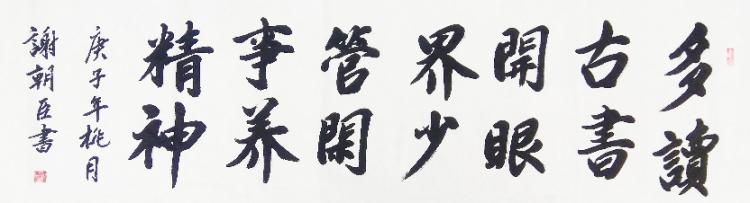 多讀
古書
開眼
界少
管閑
事养
精神
庚子年桃月
謝朝臣書